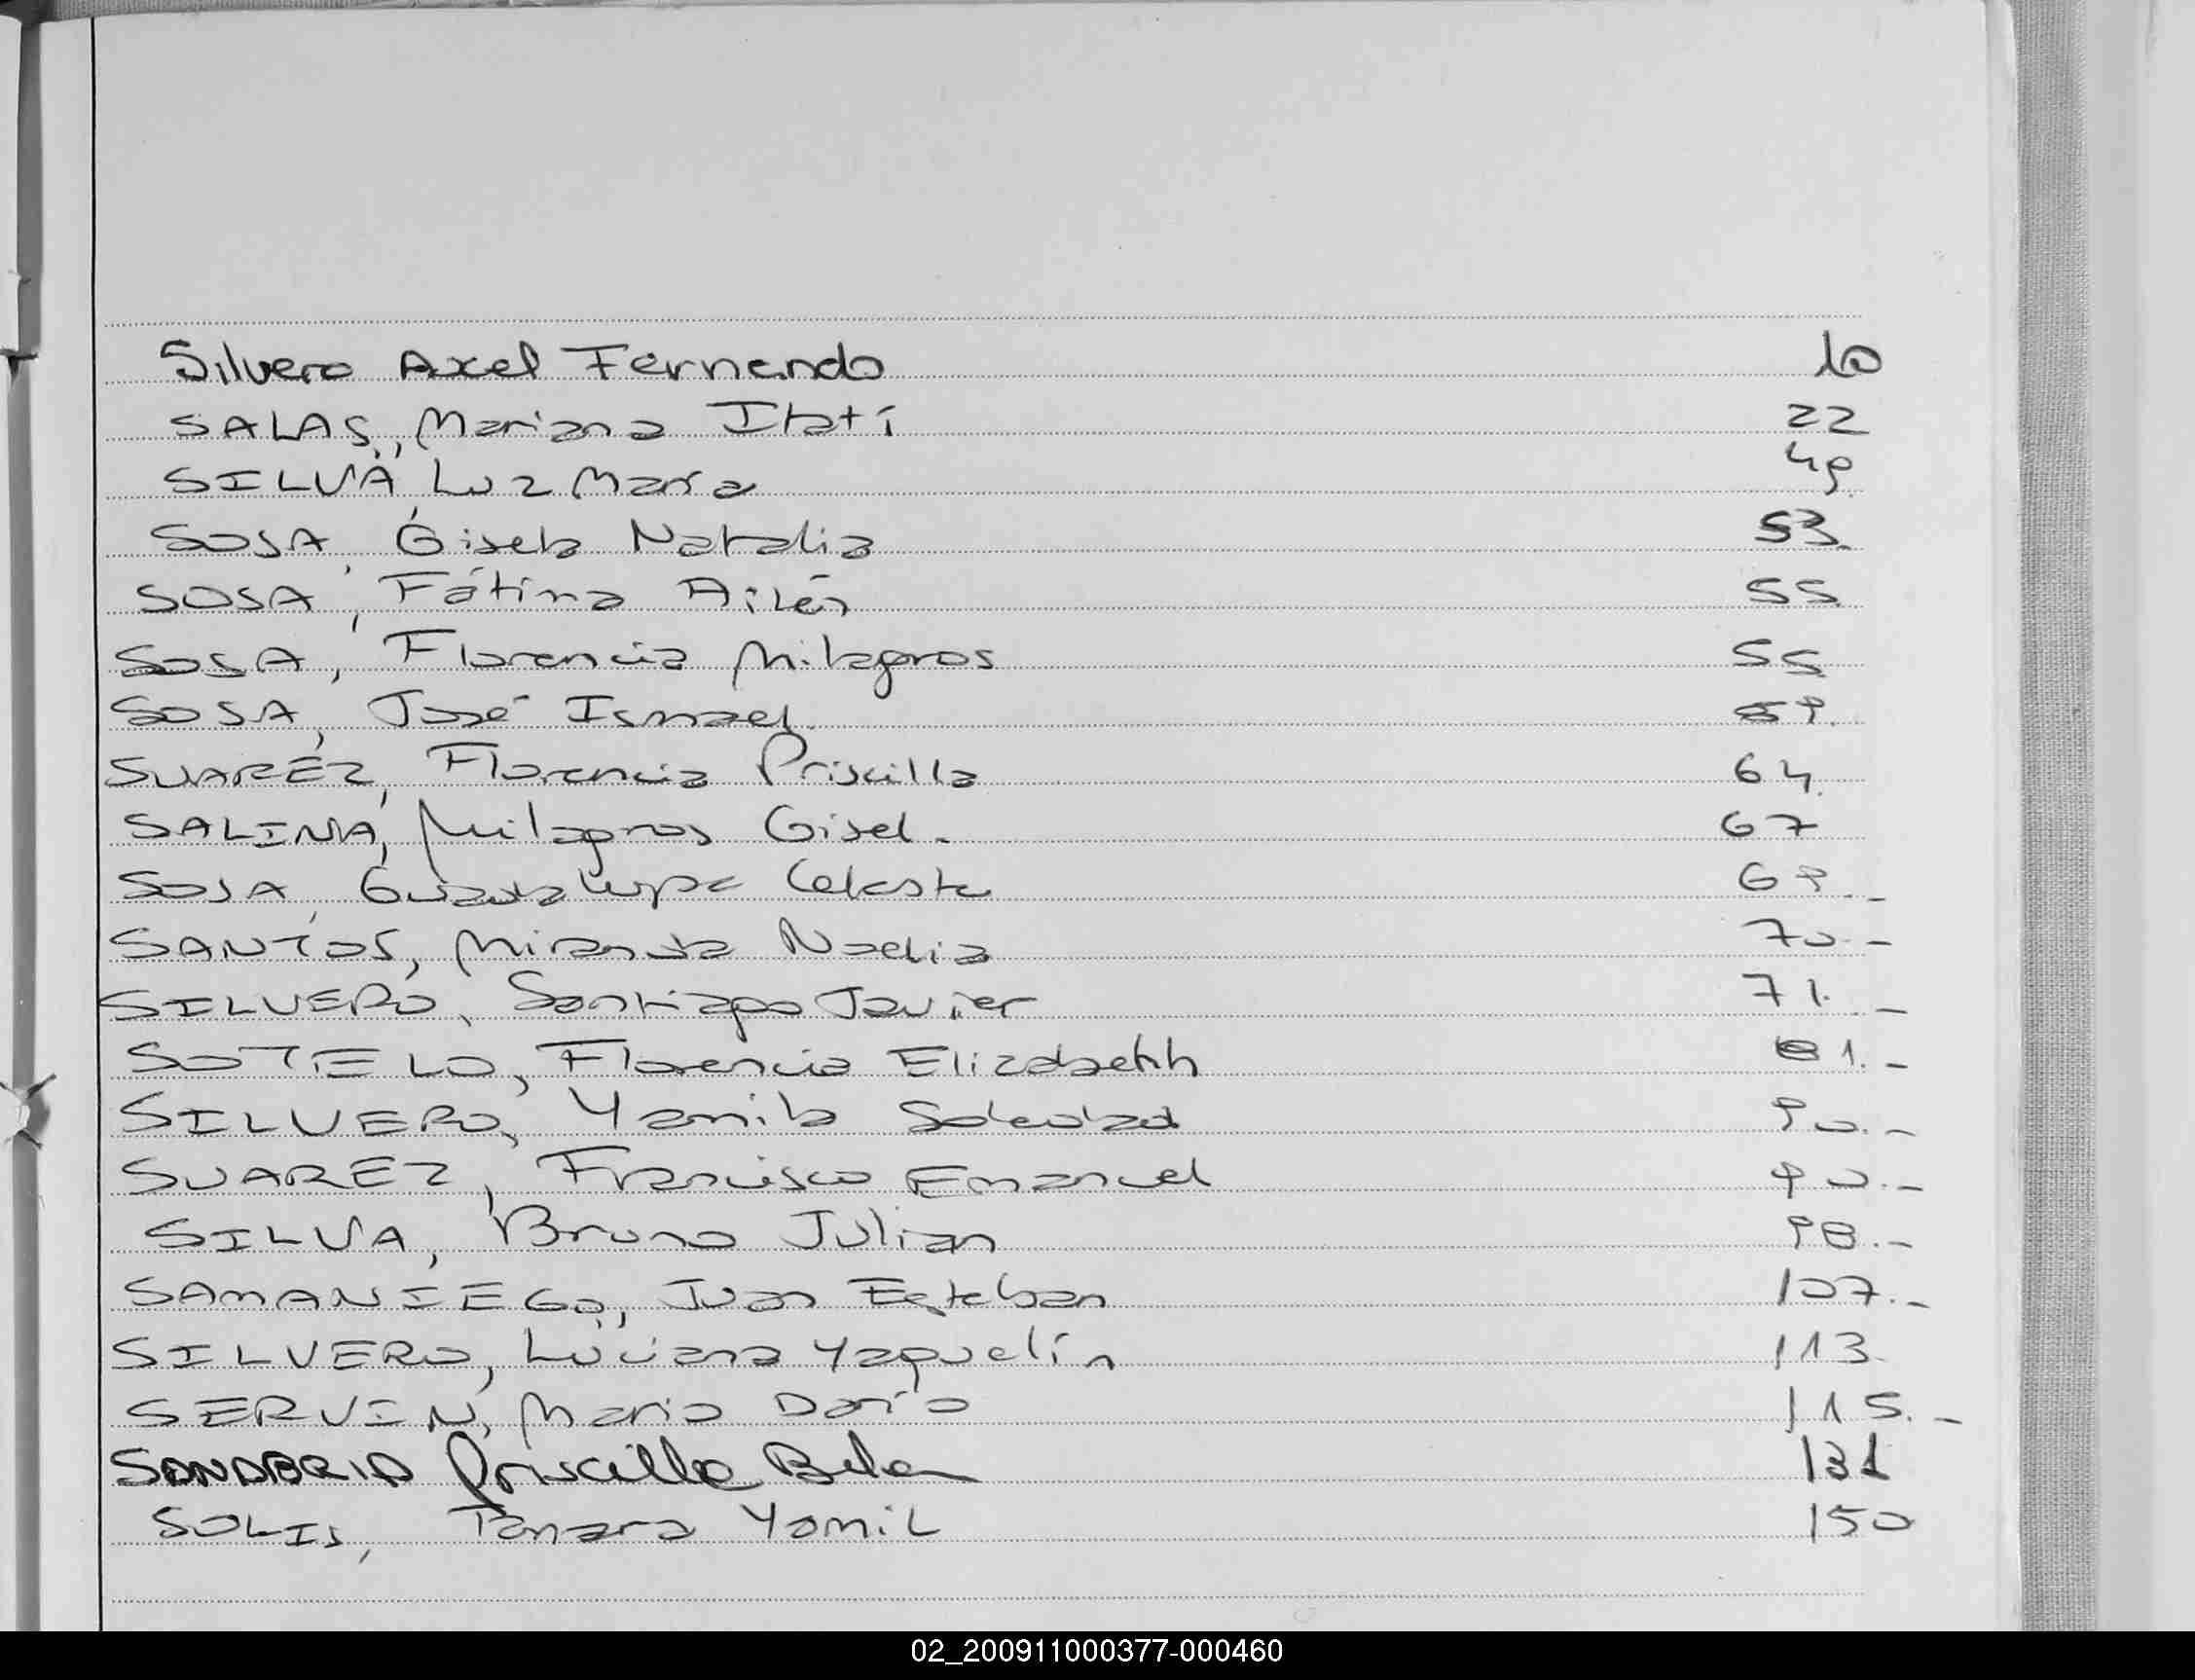 Silvero Axel Fernando 10
SALAS, Mariana Itatí 22
SILVA, Luz María 49.
SOSA, Gisela Natalia 53.
SOSA, Fátima Ailén 55.
SOSA, Florencia Milagros 55
SOSA, José Ismael. 59.
SUAREZ, Florencia Priscilla 64.
SALINA, Milagros Gisel. 67
SOSA, Guadalupe Celeste 69.-
SANTOS, Miranda Noelia 70.-
SILVERO, Santiago Javier 71.-
SOTELO, Florencia Elizabehh 81.-
SILVERO, Yamila Soledad 90.-
SUAREZ, Francisco Emanuel 90.-
SILVA, Bruno Julian 98.-
SAMANIEGO, Juan Esteban 107.-
SILVERO, Luciana Yaquelín 113.
SERVIN, Mario Darío 115.-
SANABRIA Priscilla Belen 131
SOLIS, Tamara Yamil 150
02_200911000377-000460